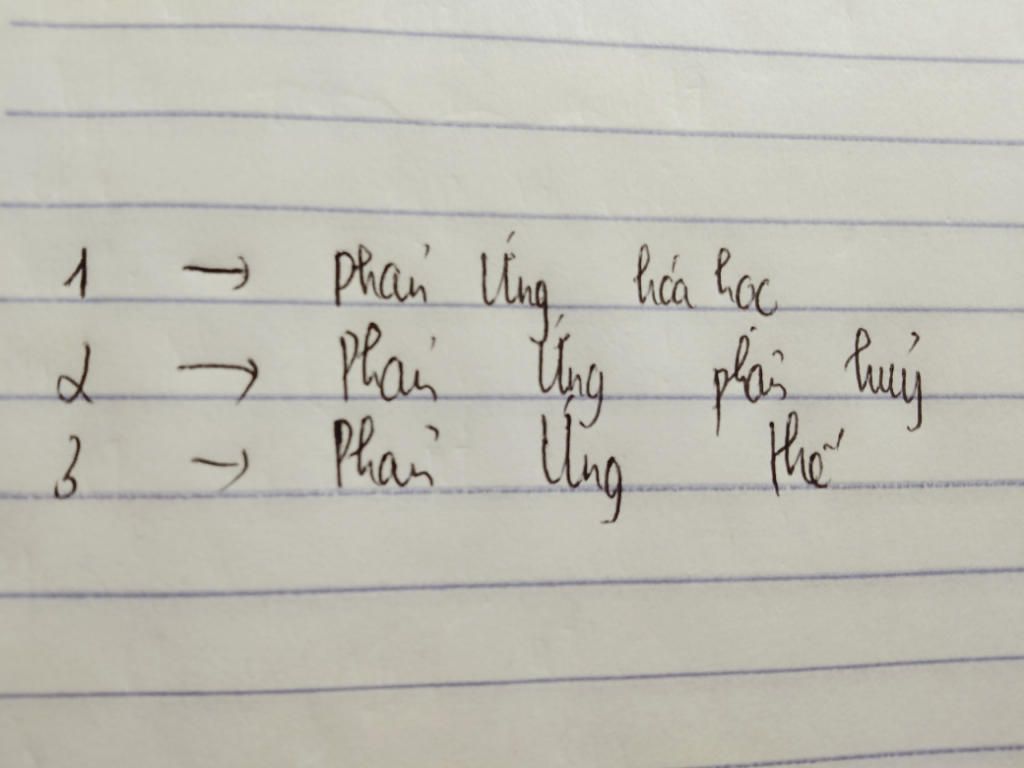 1 → phản Ứng hóa học
2 → Phản Ứng phân huỷ
3 → Phản Ứng thế